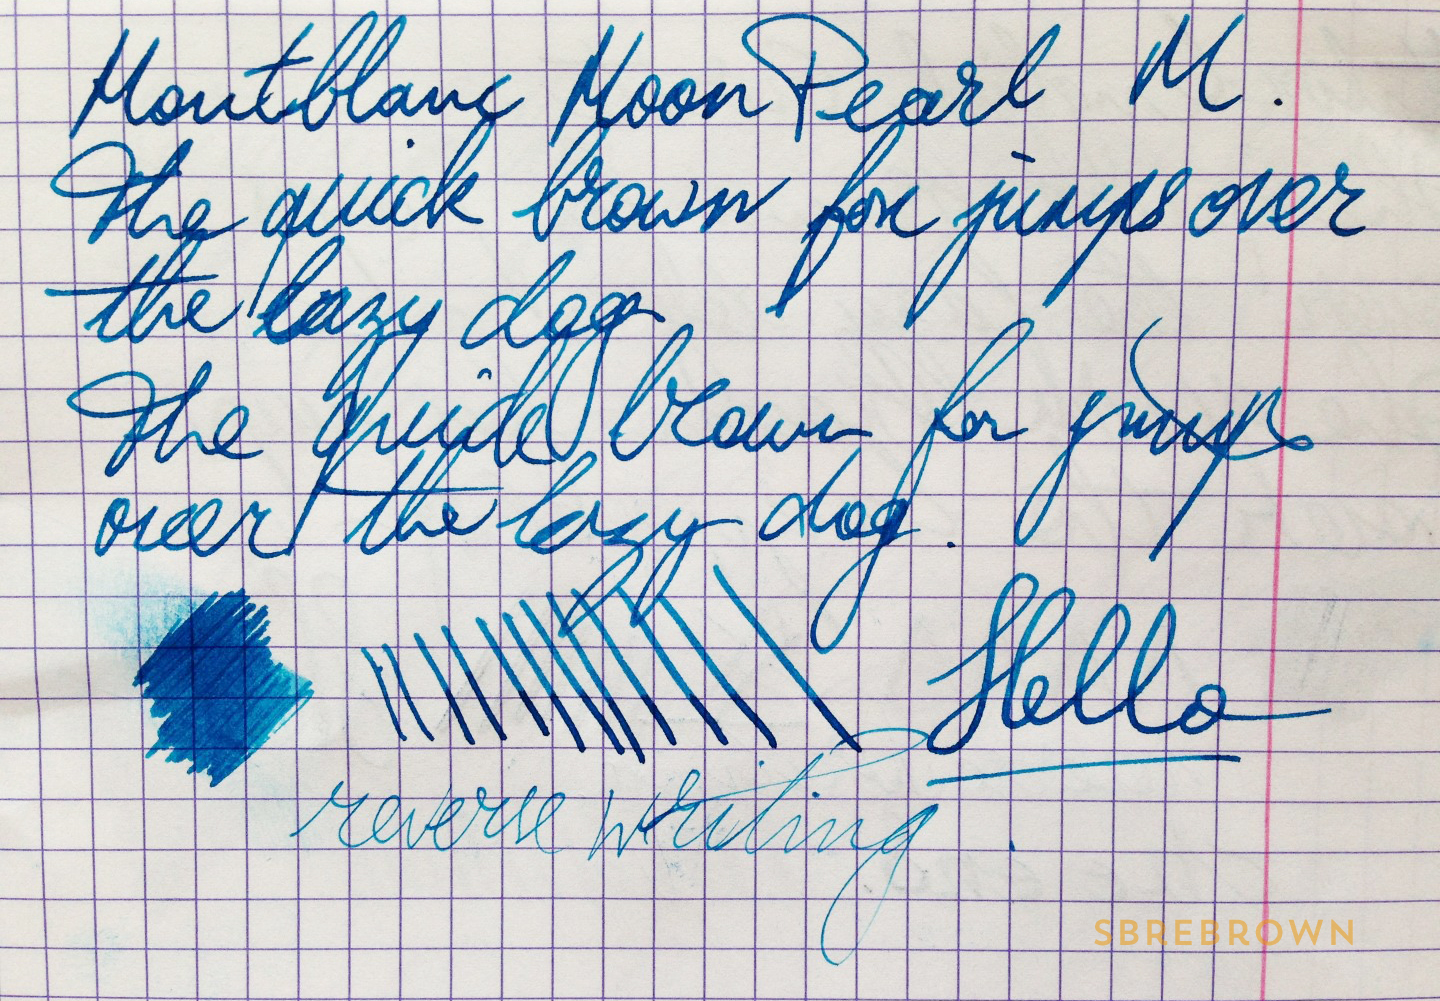 Montblanc Moon Pearl M.
The quick brown fox jumps over
the lazy dog
The quick brown fox jumps
over the lazy dog.
Hello
reverse writing.
SBREBROWN